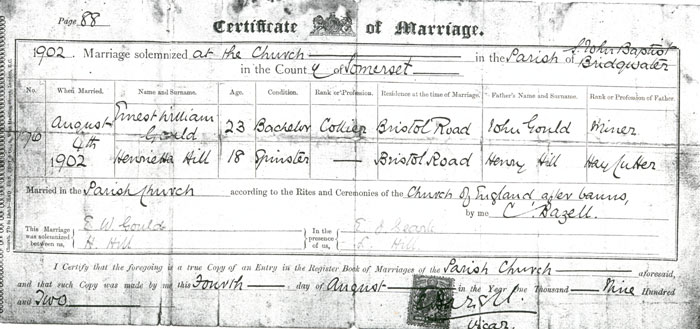 Page 88
Certificate of Marriage.
1902. Marriage solemnized at the Church in the Parish of St John Baptist Bridgwater
in the County of Somerset
No. When Married. Name and Surname. Age. Condition. Rank or Profession. Residence at the time of Marriage. Father's Name and Surname. Rank or Profession of Father.
176 August 4th 1902
Ernest William Gould 23 Bachelor Collier Bristol Road John Gould Miner
Henrietta Hill 18 Spinster — Bristol Road Henry Hill Hay Cutter
Married in the Parish Church according to the Rites and Ceremonies of the Church of England after banns,
by me C. Bazell.
This Marriage was solemnized between us, E. W. Gould H. Hill In the presence of us, Hill
I Certify that the foregoing is a true Copy of an Entry in the Register Book of Marriages of the Parish Church aforesaid,
and that such Copy was made by me this Fourth day of August in the Year One Thousand Nine Hundred
and Two
C Bazell
Vicar